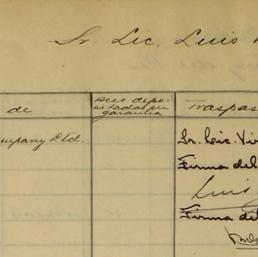 Sr. Lic. Luis
de
Acs depo-
sitadas en
garantia
Traspas
ompany Ltd.
Sr. Lic. Vir
Firma del
Luis
Firma del